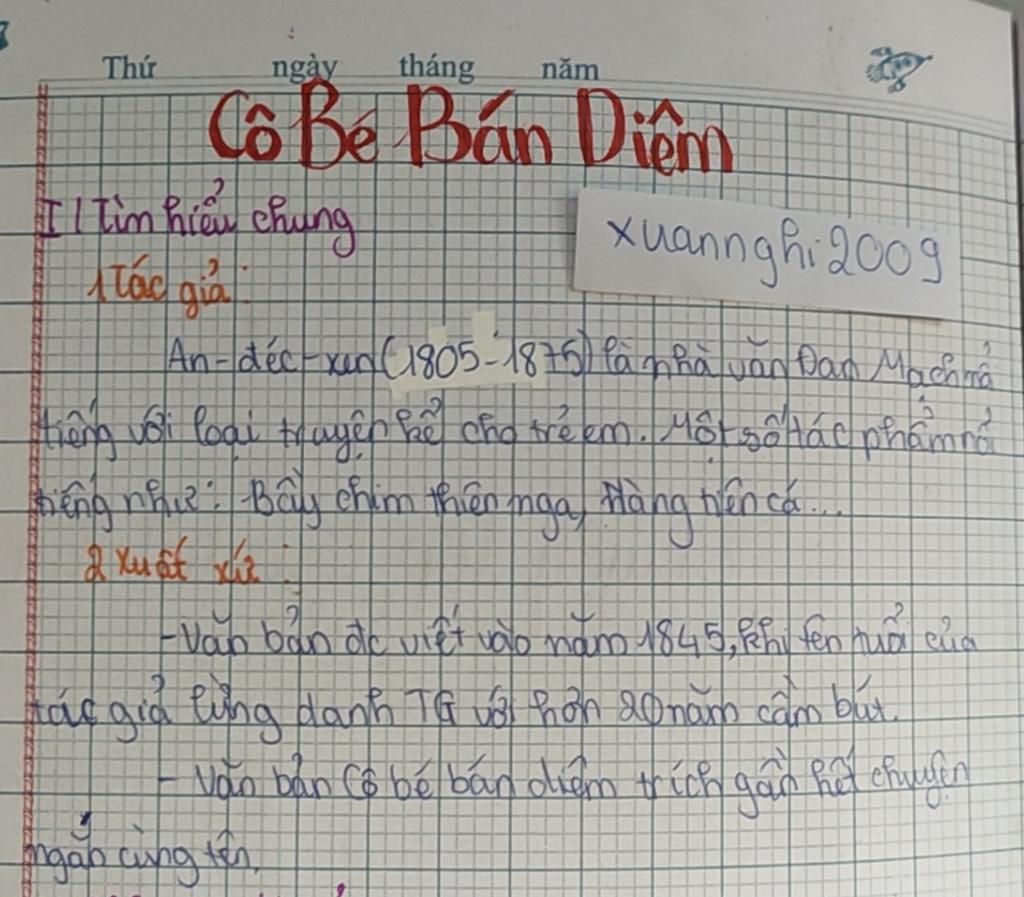 Thứ ngày tháng năm
Cô Bé Bán Diêm
I / Tìm hiểu chung
xuannghi2009
1 Tác giả:
An-đéc-xen (1805-1875) là nhà văn Đan Mạch nổ
tiếng với loại truyện kể cho trẻ em. Một số tác phẩm nổ
tiếng như: Bầy chim thiên nga, Nàng tiên cá...
2 Xuất xứ:
- Văn bản đc viết vào năm 1845, khi tên tuổi của
tác giả lừng danh TG với hơn 20 năm cầm bút.
- Văn bản Cô bé bán diêm trích gần hết chuyện
ngắn cùng tên.